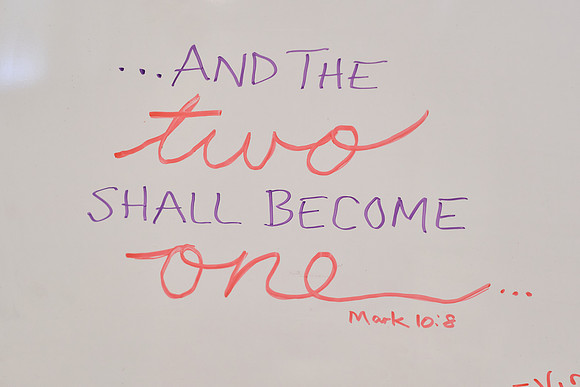 ...AND THE
two
SHALL BECOME
one...
Mark 10:8